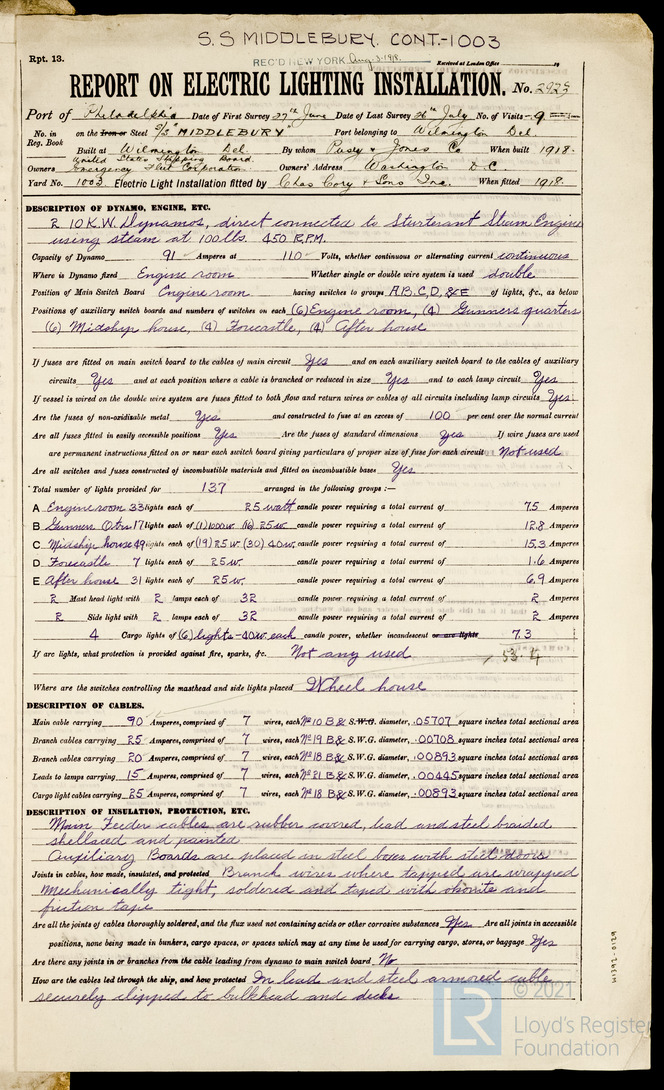 S.S MIDDLEBURY. CONT.-1003
Rpt. 13.
REC'D NEW YORK Aug 3. 1918. Received at London Office 19
REPORT ON ELECTRIC LIGHTING INSTALLATION. No. 2925
Port of Philadelphia Date of First Survey 27th June Date of Last Survey 26th July No. of Visits -9
No. in Reg. Book on the Iron or Steel S/S "MIDDLEBURY" Port belonging to Wilmington Del.
Built at Wilmington Del. By whom Pusey & Jones Co When built 1918.
United States Shipping Board.
Owners Emergency Fleet Corporation. Owners' Address Washington D.C.
Yard No. 1003 Electric Light Installation fitted by Chas Cory & Sons Inc. When fitted 1918.
DESCRIPTION OF DYNAMO, ENGINE, ETC.
2 10 K.W. Dynamos, direct connected to Sturtevant Steam Engine
using steam at 100 lbs. 450 R.P.M.
Capacity of Dynamo 91 Amperes at 110 Volts, whether continuous or alternating current continuous
Where is Dynamo fixed Engine room Whether single or double wire system is used double
Position of Main Switch Board Engine room having switches to groups A,B,C,D,&E of lights, &c., as below
Positions of auxiliary switch boards and numbers of switches on each (6) Engine room, (4) Gunners quarters
(6) Midship house, (4) Forecastle, (4) After house
If fuses are fitted on main switch board to the cables of main circuit Yes and on each auxiliary switch board to the cables of auxiliary
circuits Yes and at each position where a cable is branched or reduced in size Yes and to each lamp circuit Yes
If vessel is wired on the double wire system are fuses fitted to both flow and return wires or cables of all circuits including lamp circuits Yes
Are the fuses of non-oxidisable metal Yes and constructed to fuse at an excess of 100 per cent over the normal current
Are all fuses fitted in easily accessible positions Yes Are the fuses of standard dimensions Yes If wire fuses are used
are permanent instructions fitted on or near each switch board giving particulars of proper size of fuse for each circuit Not used
Are all switches and fuses constructed of incombustible materials and fitted on incombustible bases Yes
Total number of lights provided for 137 arranged in the following groups :—
A Engine room 33 lights each of 25 watt candle power requiring a total current of 7.5 Amperes
B Gunners Qtrs 17 lights each of (1) 100w (16) 25w. candle power requiring a total current of 12.8 Amperes
C Midship house 49 lights each of (19) 25w. (30) 40w. candle power requiring a total current of 15.3 Amperes
D Forecastle 7 lights each of 25w. candle power requiring a total current of 1.6 Amperes
E After house 31 lights each of 25w. candle power requiring a total current of 6.9 Amperes
2 Mast head light with 2 lamps each of 32 candle power requiring a total current of 2 Amperes
2 Side light with 2 lamps each of 32 candle power requiring a total current of 2 Amperes
4 Cargo lights of (6) lights - 40w. each candle power, whether incandescent or arc lights 7.3
If arc lights, what protection is provided against fire, sparks, &c. Not any used 53.4
Where are the switches controlling the masthead and side lights placed Wheel house
DESCRIPTION OF CABLES.
Main cable carrying 90 Amperes, comprised of 7 wires, each No 10 B & S.W.G. diameter, .05707 square inches total sectional area
Branch cables carrying 25 Amperes, comprised of 7 wires, each No 19 B & S.W.G. diameter, .00708 square inches total sectional area
Branch cables carrying 20 Amperes, comprised of 7 wires, each No 18 B & S.W.G. diameter, .00893 square inches total sectional area
Leads to lamps carrying 15 Amperes, comprised of 7 wires, each No 21 B & S.W.G. diameter, .00445 square inches total sectional area
Cargo light cables carrying 25 Amperes, comprised of 7 wires, each No 18 B & S.W.G. diameter, .00893 square inches total sectional area
DESCRIPTION OF INSULATION, PROTECTION, ETC.
Main Feeder cables are rubber covered, lead and steel braided
shellaced and painted
Auxiliary Boards are placed in steel boxes with steel doors
Joints in cables, how made, insulated, and protected Branch wires where tapped are wrapped
mechanically tight, soldered and taped with okonite and
friction tape
Are all the joints of cables thoroughly soldered, and the flux used not containing acids or other corrosive substances Yes. Are all joints in accessible
positions, none being made in bunkers, cargo spaces, or spaces which may at any time be used for carrying cargo, stores, or baggage Yes
Are there any joints in or branches from the cable leading from dynamo to main switch board No
How are the cables led through the ship, and how protected In lead and steel armored cable
securely clipped to bulkhead and decks
W1392-0129
© 2021
LR
Lloyd's Register
Foundation